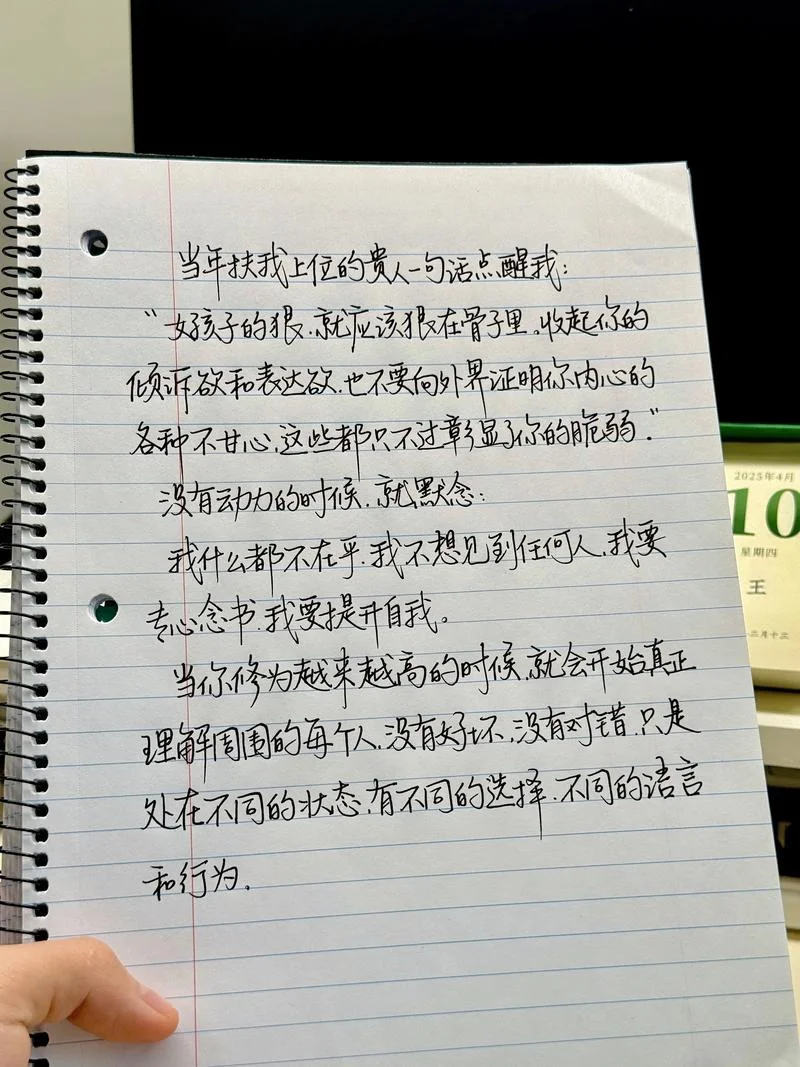 当年扶我上位的贵人一句话点醒我:
“女孩子的狠.就应该狠在骨子里.收起你的
倾诉欲和表达欲.也不要向外界证明你内心的
各种不甘心,这些都只不过彰显了你的脆弱.”
没有动力的时候.就默念:
我什么都不在乎.我不想见到任何人,我要
专心念书.我要提升自我。
当你修为越来越高的时候,就会开始真正
理解周围的每个人,没有好坏,没有对错.只是
处在不同的状态,有不同的选择.不同的语言
和行为.
2025年4月
10
星期四
王
二月十三